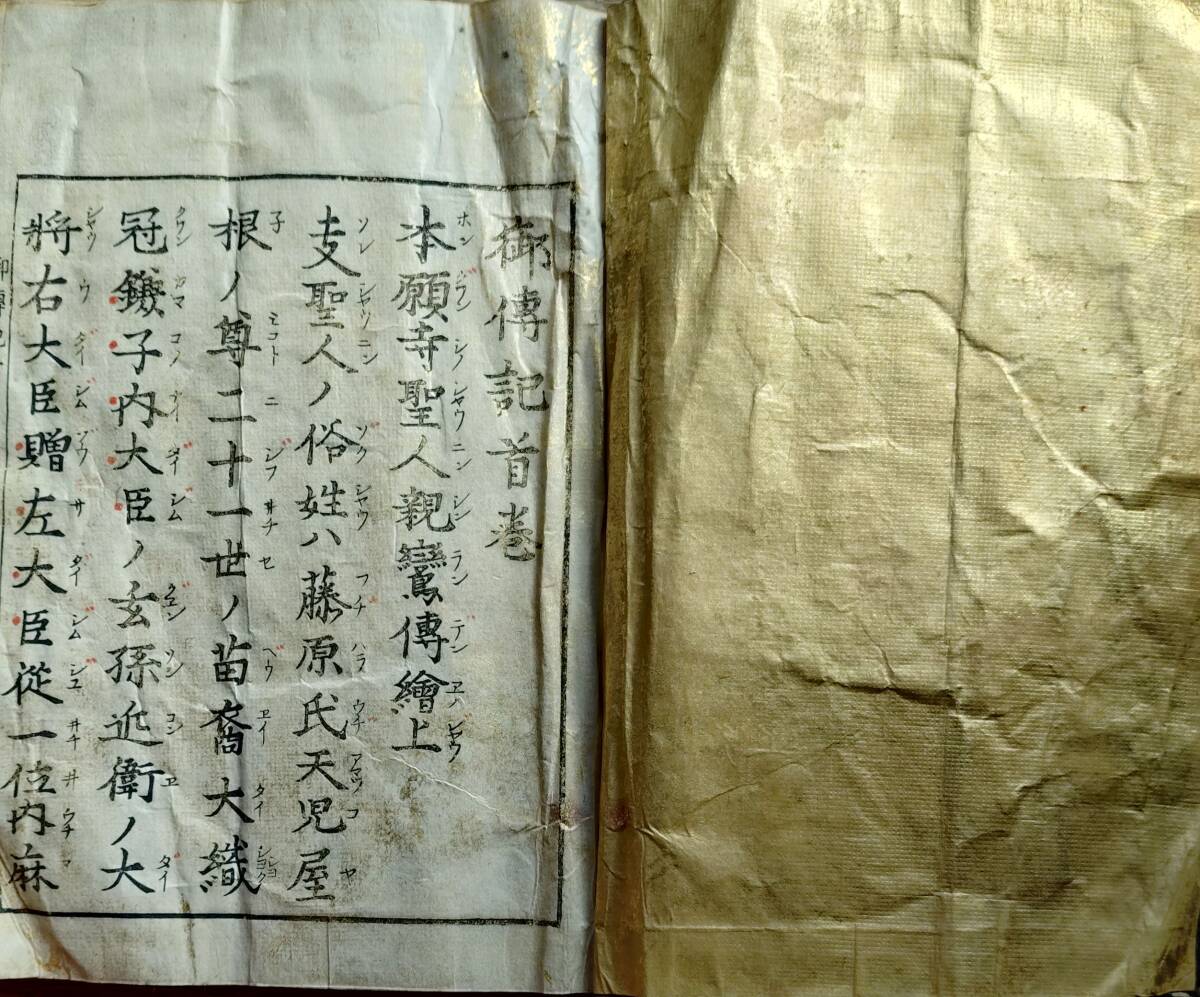 御傳記首巻
本願寺聖人親鸞傳繪上
夫聖人ノ俗姓ハ藤原氏天児屋
根ノ尊二十一世ノ苗裔大織
冠鎌子内大臣ノ玄孫近衛ノ大
將右大臣贈左大臣從一位内麻